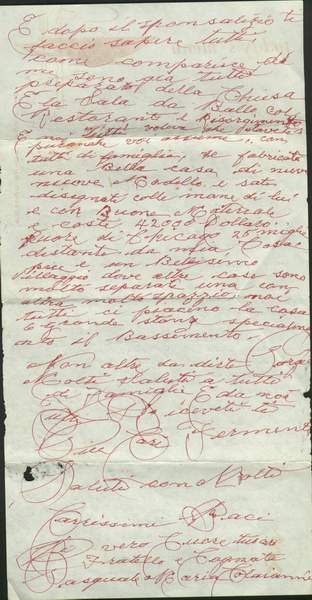 E dopo il sponsalizio ti
faccio sapere tutti
come comparisce
me sono gia tutto
preparato della Chiesa
E la Sala da Ballo col
Ristoranti e
E noi tutti
voi assieme, con
tutti di famiglia, se fabricato
una Bella casa di nuovo
nuovo Modello e sata
disegnati colle mane di lui
e con Buone Matiriale
e costa 42000 Dollari
fuore di Chicago 25 miglie
distante da mia Casa
pure e un Betissemo
Villaggio dove altre case sono
molto separati una con
altra molto spazzio noi
tutti ci piaceno la casa
6 grande stanze specialmen
te il Bassimento.
Non altro da dirti
Molti Saluti a tutti
di famiglie E da noi
tutti Riceveti te
Dice
Saluti con Molti
Carissimi Baci
Di vero Cuore tuoi
Fratello e Cognata
Pasquale e Maria